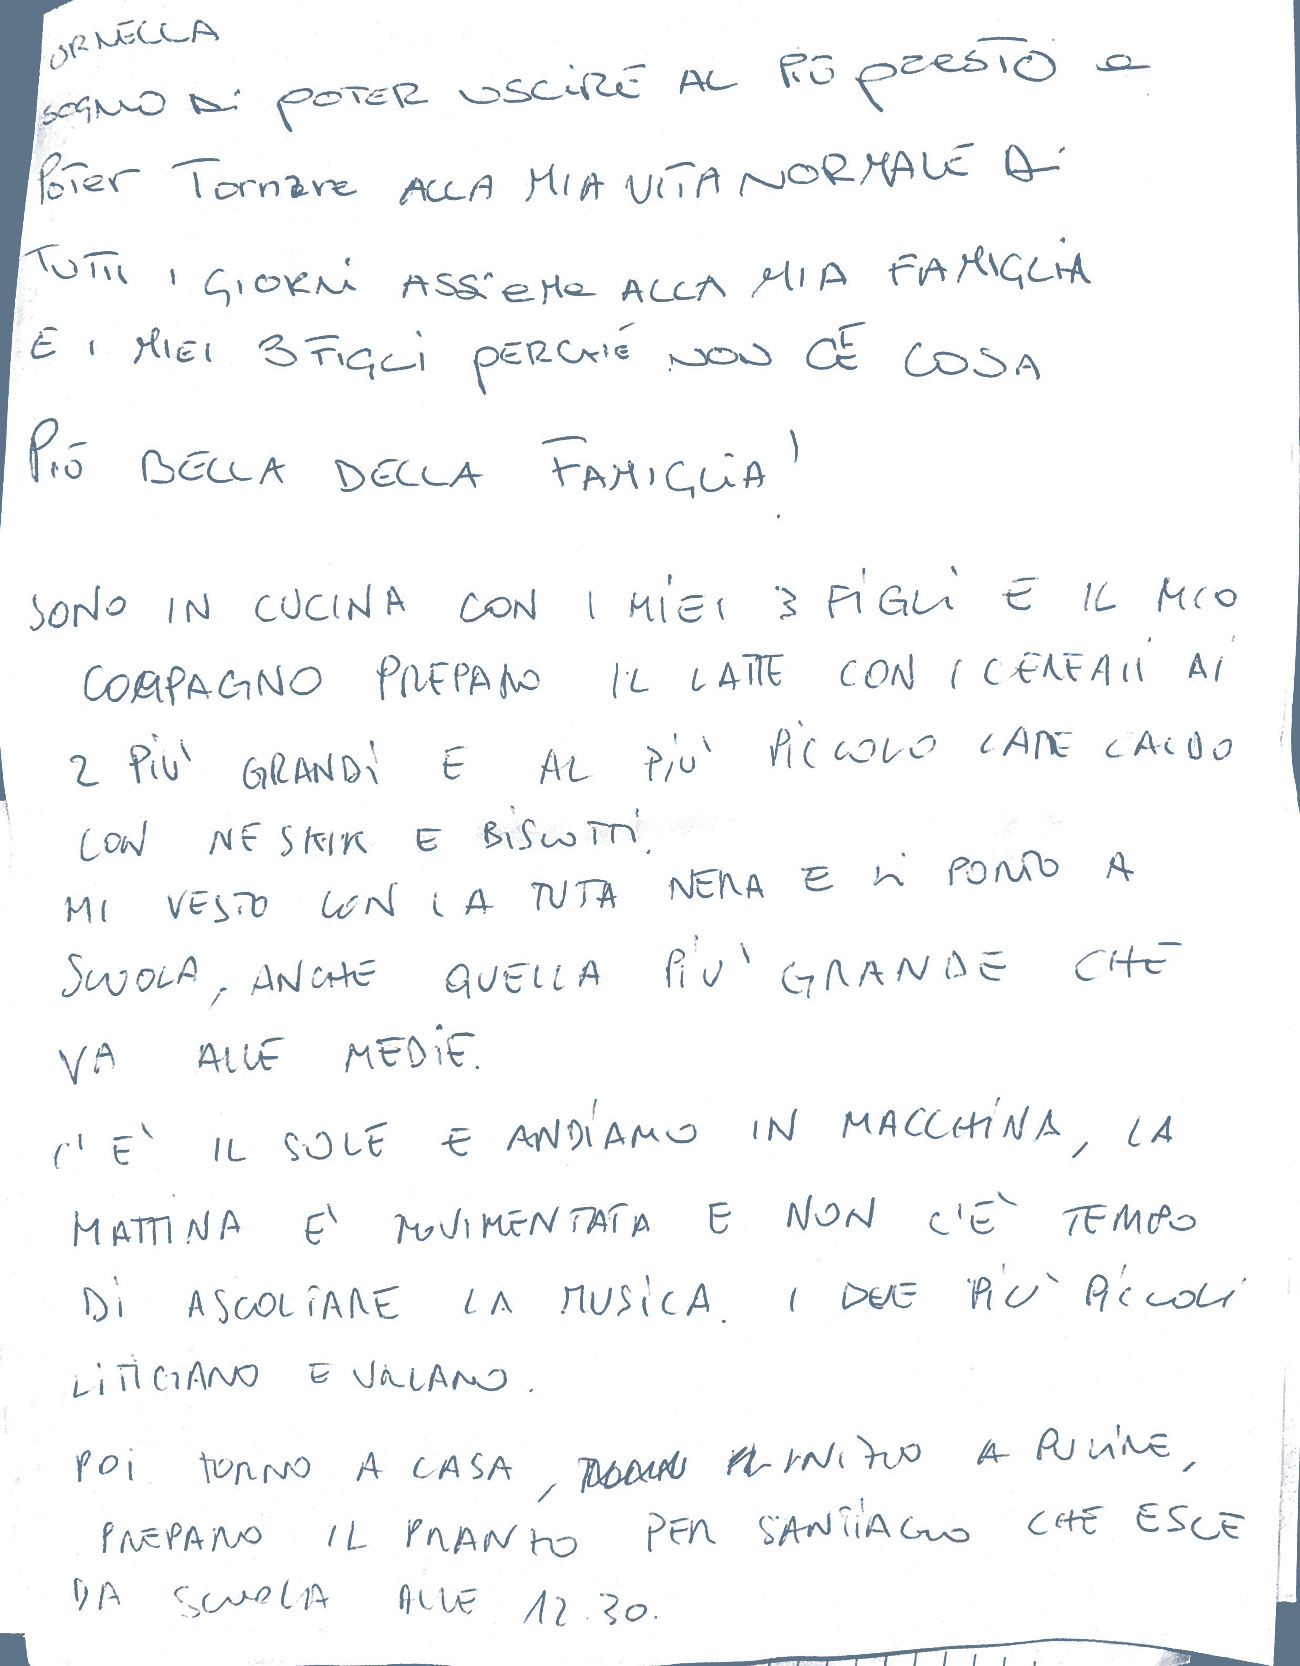 ORNELLA
SOGNO Di POTER USCIRE AL PIÙ PRESTO e
POTER TORNARE ALLA MIA VITA NORMALE Di
TUTTI I GIORNi ASSiEMe ALLA MIA FAMIGLIA
E I MIEI 3 FIGLi PERCHÉ NON CÈ COSA
PIÙ BELLA DELLA FAMIGLIA!
SONO IN CUCINA CON I MIEI 3 FIGLI E IL MIO
COMPAGNO PREPARO IL LATTE CON I CEREALI AI
2 PIU' GRANDI E AL PIU' PICCOLO LATTE CALDO
CON NESKIK E BISCOTTI.
MI VESTO CON LA TUTA NERA E li PORTO A
SCUOLA, ANCHE QUELLA PIU' GRANDE CHE
VA ALLE MEDIE.
C'E' IL SOLE E ANDIAMO IN MACCHINA, LA
MATTINA E' MOVIMENTATA E NON C'E' TEMPO
DI ASCOLTARE LA MUSICA. I DUE PIU' PICCOLI
LITIGANO E URLANO.
POI TORNO A CASA, INIZIO A PULIRE,
PREPARO IL PRANZO PER SANTIAGO CHE ESCE
DA SCUOLA ALLE 12.30.